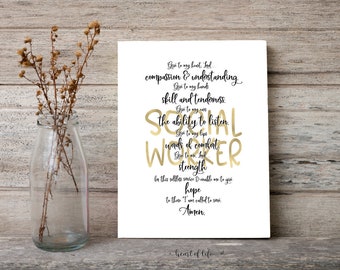 Give to my heart, Lord
compassion & understanding.
Give to my hands
skill and tenderness.
Give to my ears
the ability to listen.
Give to my lips
words of comfort.
Give to me, Lord
strength
for this selfless service & enable me to give
hope
to those I am called to serve.
Amen.
SOCIAL
WORKER
heart of life